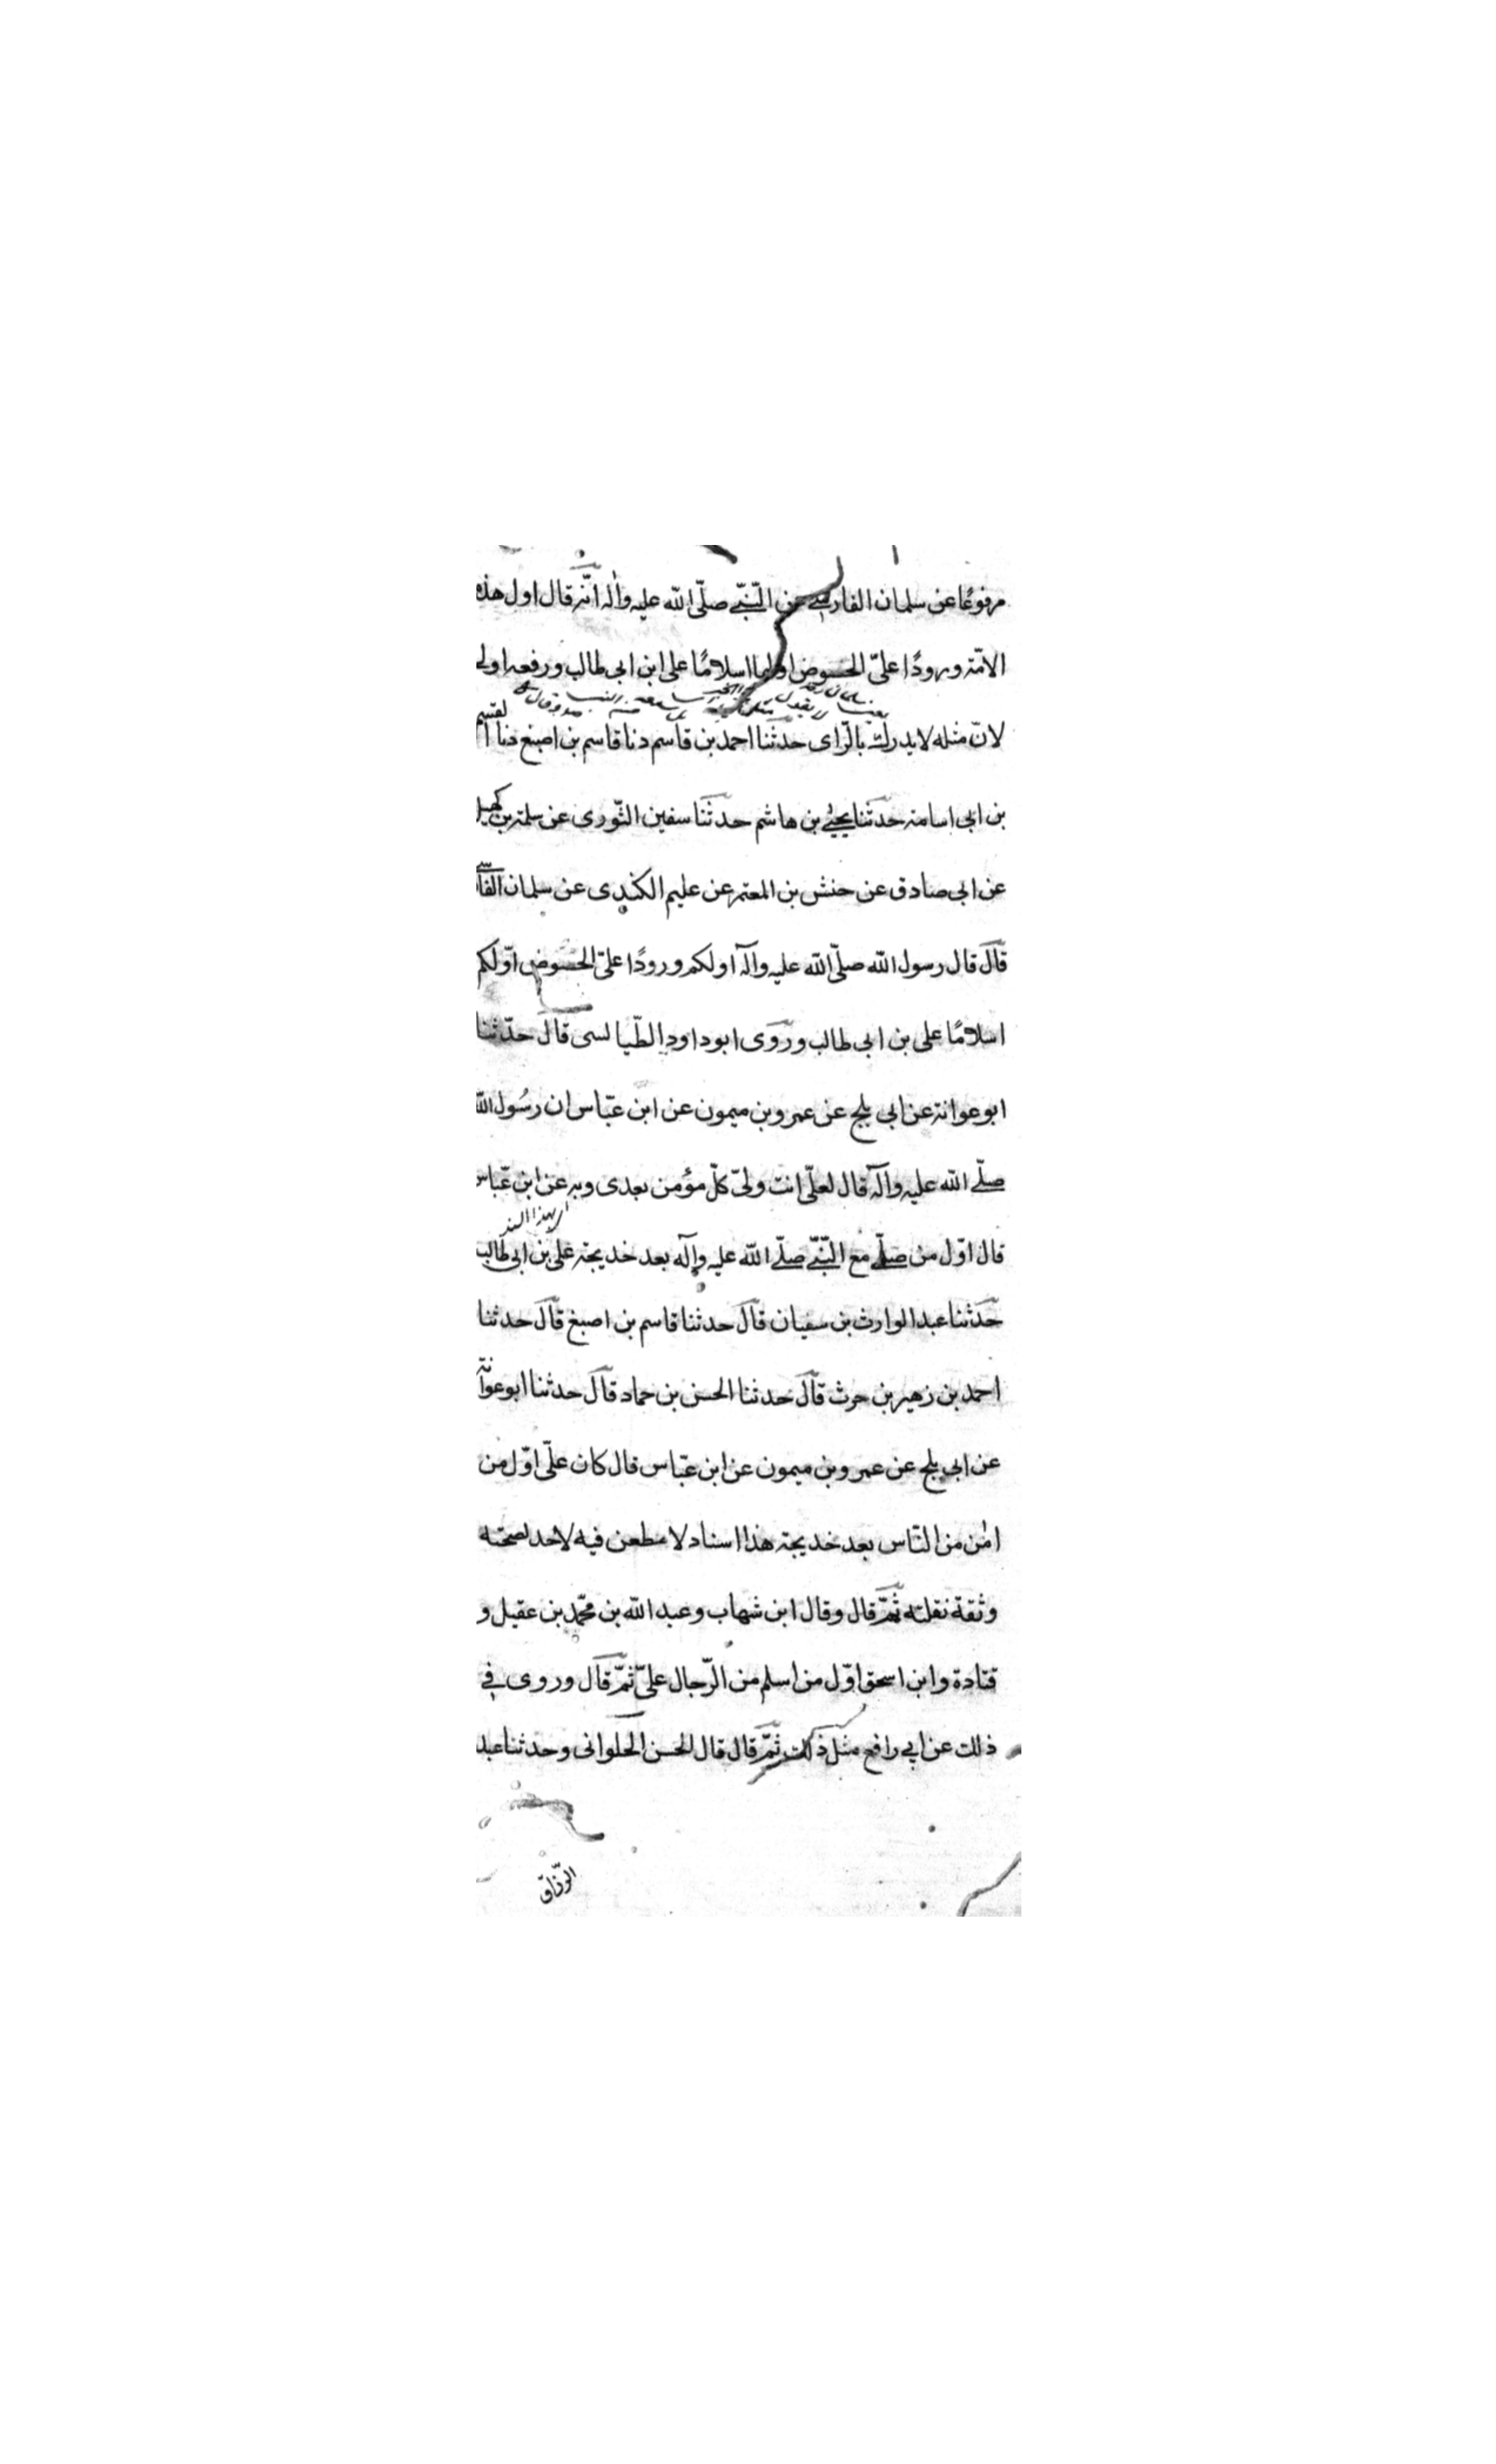 مرفوعًا عن سلمان الفارسی عن النّبیّ صلّی الله علیه واٰله انّه قال اول هذه
الامّة ورودًا علیّ الحسوض اولها اسلامًا علی ابن ابی طالب ورفعه اولی
لانّ مثله لا یدرك بالرّای حدثنا احمد بن قاسم دنا قاسم بن اصبغ دنا
بن ابی اسامة حدثنا یحیی بن هاشم حدثنا سفین الثّوری عن سلمة بن کهیل
عن ابی صادق عن حنش بن المعتمر عن علیم الکندی عن سلمان الفارسی
قال قال رسول الله صلّی الله علیه وآله اولکم ورودًا علیّ الحسوض اوّلکم
اسلامًا علی بن ابی طالب وروی ابو داود الطّیالسی قال حدّثنا
ابو عوانة عن ابی بلج عن عمرو بن میمون عن ابن عبّاس ان رسُول الله
صلّی الله علیه وآله قال لعلّی انت ولیّ کلّ مؤمن بعدی وبه عن ابن عبّاس
ای بهذا السند
قال اوّل من صلّی مع النّبیّ صلّی الله علیه وآله بعد خدیجة علی بن ابی طالب
حدثنا عبد الوارث بن سفیان قال حدثنا قاسم بن اصبغ قال حدثنا
احمد بن زهیر بن حرث قال حدثنا الحسن بن حماد قال حدثنا ابو عوانة
عن ابی بلج عن عمرو بن میمون عن ابن عبّاس قال کان علّی اوّل من
اٰمن من النّاس بعد خدیجة هذا اسناد لا مطعن فیه لاحد لصحته
وثقة نقلته ثمّ قال وقال ابن شهاب وعبد الله بن محمّد بن عقیل و
قتادة وابن اسحق اوّل من اسلم من الرّجال علیّ ثمّ قال وروی فی
ذلك عن ابی رافع مثل ذلك ثمّ قال قال الحسن الحلوانی وحدثنا عبد
الرّزاق